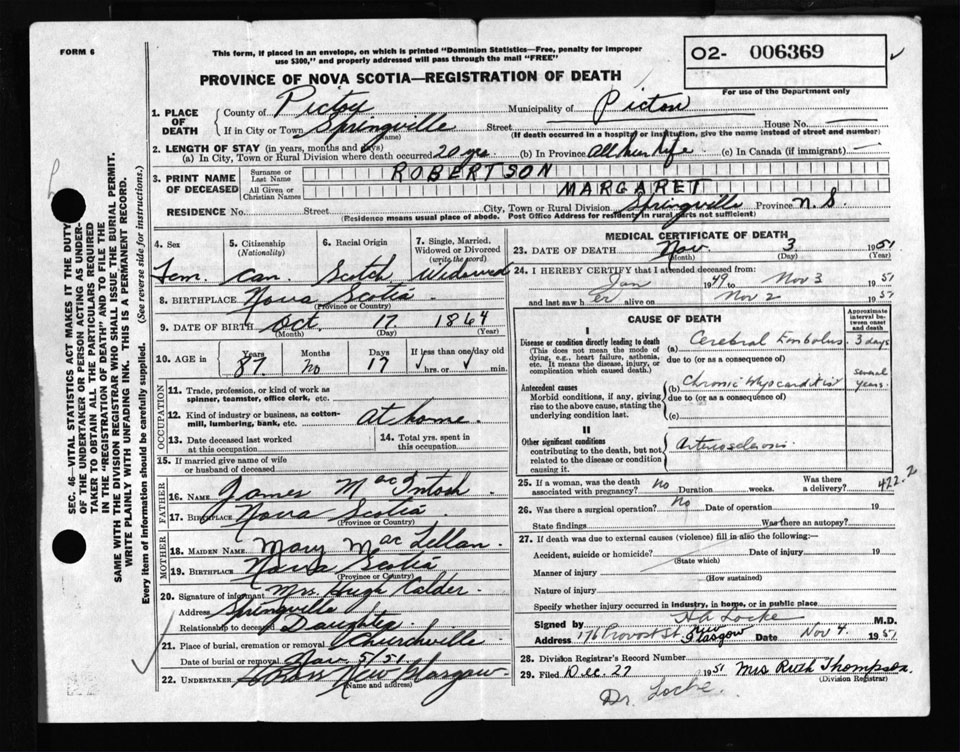 FORM 6
This form, if placed in an envelope, on which is printed "Dominion Statistics—Free, penalty for improper
use $300," and properly addressed will pass through the mail "FREE"
PROVINCE OF NOVA SCOTIA—REGISTRATION OF DEATH
O2- 006369
For use of the Department only
1. PLACE OF DEATH
County of Pictou Municipality of Pictou
If in City or Town Springville Street House No.
(Name) (If death occurred in a hospital or institution, give the name instead of street and number)
2. LENGTH OF STAY (in years, months and days)
(a) In City, Town or Rural Division where death occurred 20 yrs (b) In Province All her life (c) In Canada (if immigrant)
3. PRINT NAME OF DECEASED
Surname or Last Name ROBERTSON
All Given or Christian Names MARGARET
RESIDENCE No. Street City, Town or Rural Division Springville Province N.S.
(Residence means usual place of abode. Post Office Address for residents in rural parts not sufficient)
4. Sex Fem.
5. Citizenship (Nationality) Can.
6. Racial Origin Scotch
7. Single, Married, Widowed or Divorced (write the word) Widowed
8. BIRTHPLACE Nova Scotia
(Province or Country)
9. DATE OF BIRTH Oct. 17 1864
(Month) (Day) (Year)
10. AGE in Years 87 Months no Days 17 If less than one/day old hrs. or min.
OCCUPATION
11. Trade, profession, or kind of work as
spinner, teamster, office clerk, etc.
12. Kind of industry or business, as cotton-
mill, lumbering, bank, etc. At home.
13. Date deceased last worked
at this occupation
14. Total yrs. spent in
this occupation
15. If married give name of wife
or husband of deceased
FATHER
16. NAME James MacIntosh
17. BIRTHPLACE Nova Scotia
(Province or Country)
MOTHER
18. MAIDEN NAME Mary MacLellan.
19. BIRTHPLACE Nova Scotia
(Province or Country)
20. Signature of informant Mrs. Hugh Calder.
Address Springville
Relationship to deceased Daughter
21. Place of burial, cremation or removal Churchville
Date of burial or removal Nov. 5/51
22. UNDERTAKER New Glasgow
(Name and address)
MEDICAL CERTIFICATE OF DEATH
23. DATE OF DEATH Nov. 3 1951
(Month) (Day) (Year)
24. I HEREBY CERTIFY that I attended deceased from:
Jan 1949 to Nov 3 1951
and last saw h er alive on Nov 2 1951
CAUSE OF DEATH
Approximate interval between onset and death
I
Disease or condition directly leading to death
(This does not mean the mode of
dying, e.g., heart failure, asthenia,
etc. It means the disease, injury, or
complication which caused death.)
(a) Cerebral Embolus 3 days
due to (or as a consequence of)
Antecedent causes
Morbid conditions, if any, giving
rise to the above cause, stating the
underlying condition last.
(b) Chronic Myocarditis several years.
due to (or as a consequence of)
(c)
II
Other significant conditions
contributing to the death, but not
related to the disease or condition
causing it.
Arteriosclerosis.
25. If a woman, was the death
associated with pregnancy? No Duration weeks. Was there
a delivery?
422.2
26. Was there a surgical operation? No Date of operation 19
State findings Was there an autopsy?
27. If death was due to external causes (violence) fill in also the following:—
Accident, suicide or homicide? Date of injury 19
(State which)
Manner of injury
(How sustained)
Nature of injury
Specify whether injury occurred in industry, in home, or in public place
Signed by HA Locke M.D.
Address 176 Provost St. New Glasgow Date Nov 4. 1951
28. Division Registrar's Record Number
29. Filed Dec. 27 1951 Mrs Ruth Thompson.
(Division Registrar)
Dr. Locke.
SEC. 46—VITAL STATISTICS ACT MAKES IT THE DUTY
OF THE UNDERTAKER OR PERSON ACTING AS UNDER-
TAKER TO OBTAIN ALL THE PARTICULARS REQUIRED
IN THE "REGISTRATION OF DEATH" AND TO FILE THE
SAME WITH THE DIVISION REGISTRAR WHO SHALL ISSUE THE BURIAL PERMIT.
WRITE PLAINLY WITH UNFADING INK. THIS IS A PERMANENT RECORD.
Every item of information should be carefully supplied. (See reverse side for instructions.)